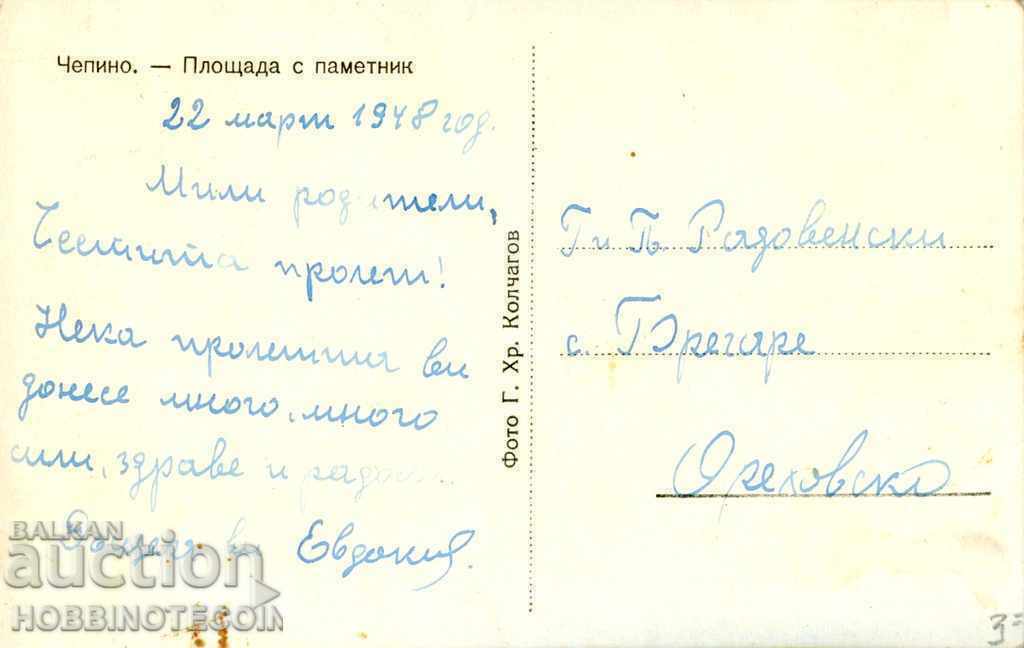 Чепино. — Площада с паметник
22 март 1948 год.
Мили родители,
Честита пролет!
Нека пролетта ви
донесе много, много
сили, здраве и
ви Евдокия.
Фото Г. Хр. Колчагов
Г. и П. Радовенски
с. Брегаре
Ореховско
BALKAN
auction
HOBBINOTECOIN
37